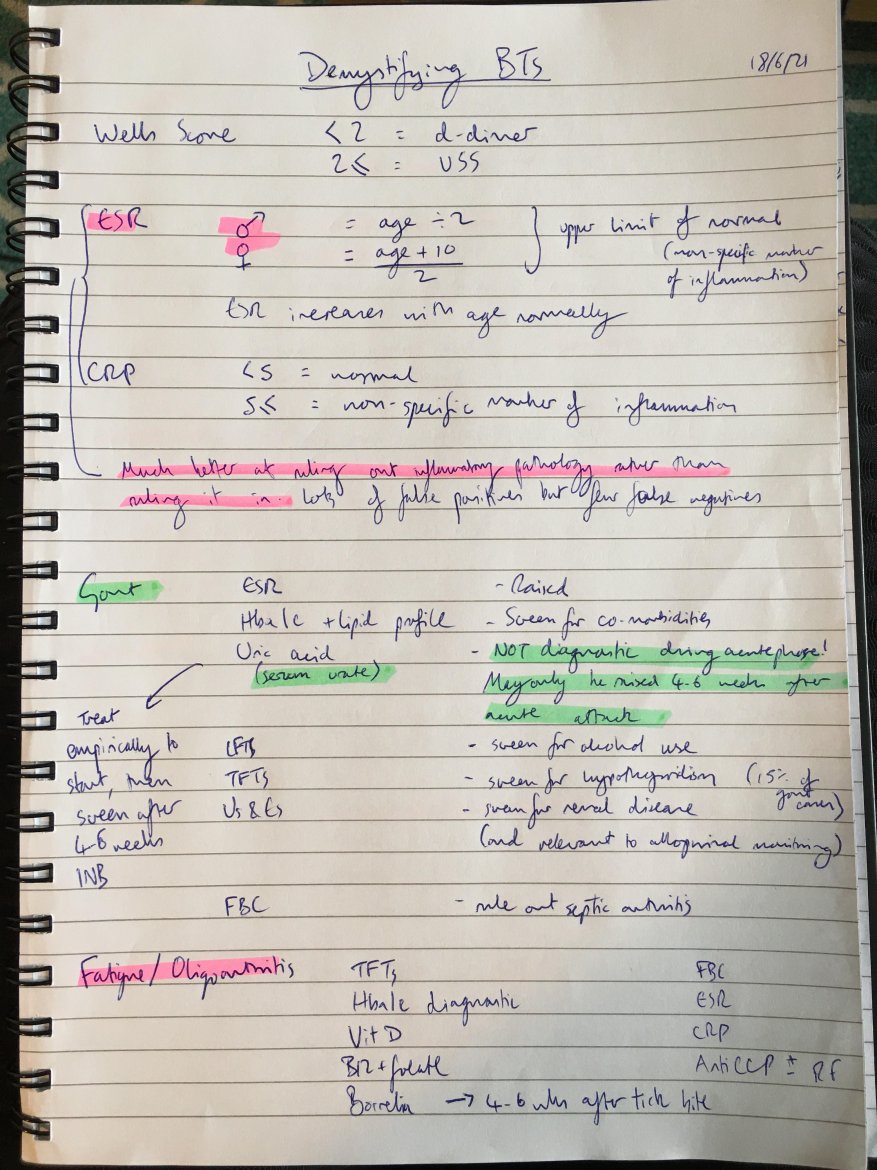 Demystifying BTs 18/6/21
Wells Score <2 = d-dimer
2≤ = USS
ESR ♂ = age ÷ 2 } upper limit of normal
♀ = age + 10 / 2 (non-specific marker of inflammation)
ESR increases with age normally
CRP <5 = normal
5≤ = non-specific marker of inflammation
Much better at ruling out inflammatory pathology rather than
ruling it in. Lots of false positives but few false negatives
Gout ESR - Raised
Hba1c + Lipid profile - Screen for co-morbidities
Uric acid - NOT diagnostic during acute phase!
(serum urate) May only be raised 4-6 weeks after
acute attack
Treat
empirically to
start, then
screen after
4-6 weeks
INB
LFTs - screen for alcohol use
TFTs - screen for hypothyroidism (15% of gout cases)
Us & Es - screen for renal disease
(and relevant to allopurinol monitoring)
FBC - rule out septic arthritis
Fatigue / Oligoarthritis TFTs FBC
Hba1c diagnostic ESR
Vit D CRP
B12 + folate AntiCCP ± RF
Borrelia → 4-6 wks after tick bite